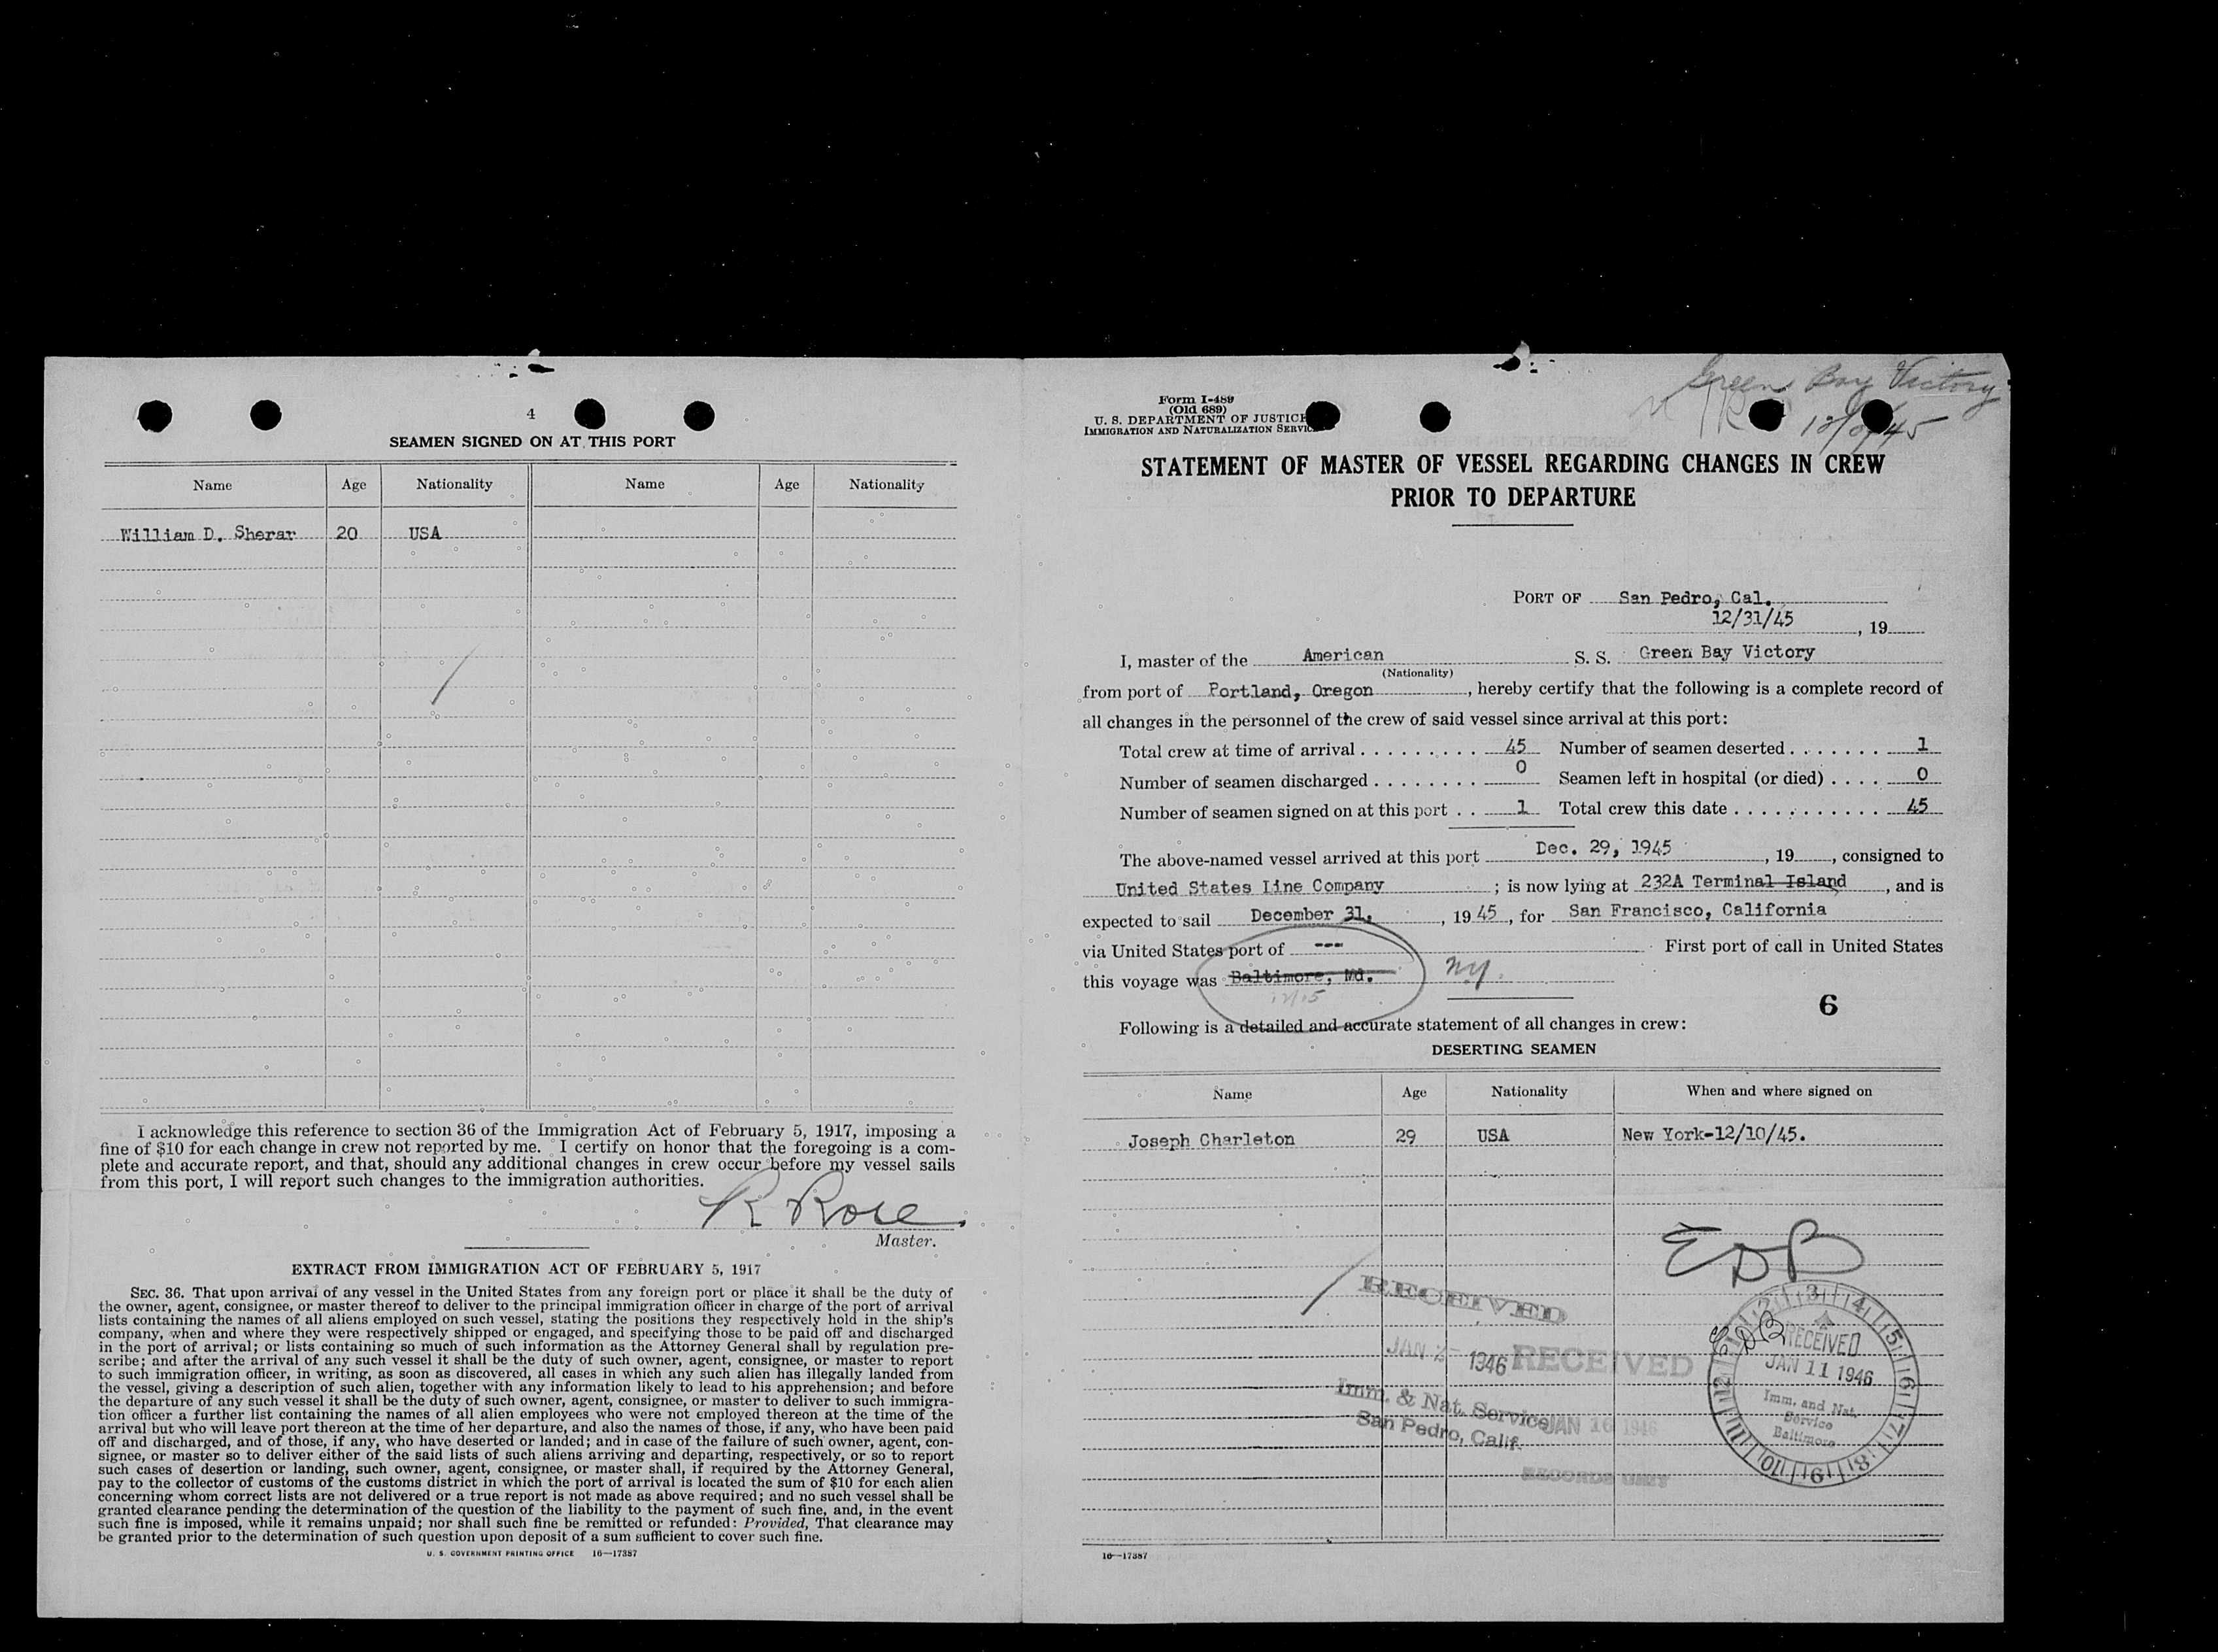 4
SEAMEN SIGNED ON AT THIS PORT
Name Age Nationality Name Age Nationality
William D. Sherar 20 USA
I acknowledge this reference to section 36 of the Immigration Act of February 5, 1917, imposing a
fine of $10 for each change in crew not reported by me. I certify on honor that the foregoing is a com-
plete and accurate report, and that, should any additional changes in crew occur before my vessel sails
from this port, I will report such changes to the immigration authorities.
R Rose
Master.
EXTRACT FROM IMMIGRATION ACT OF FEBRUARY 5, 1917
SEC. 36. That upon arrival of any vessel in the United States from any foreign port or place it shall be the duty of
the owner, agent, consignee, or master thereof to deliver to the principal immigration officer in charge of the port of arrival
lists containing the names of all aliens employed on such vessel, stating the positions they respectively hold in the ship's
company, when and where they were respectively shipped or engaged, and specifying those to be paid off and discharged
in the port of arrival; or lists containing so much of such information as the Attorney General shall by regulation pre-
scribe; and after the arrival of any such vessel it shall be the duty of such owner, agent, consignee, or master to report
to such immigration officer, in writing, as soon as discovered, all cases in which any such alien has illegally landed from
the vessel, giving a description of such alien, together with any information likely to lead to his apprehension; and before
the departure of any such vessel it shall be the duty of such owner, agent, consignee, or master to deliver to such immigra-
tion officer a further list containing the names of all alien employees who were not employed thereon at the time of the
arrival but who will leave port thereon at the time of her departure, and also the names of those, if any, who have been paid
off and discharged, and of those, if any, who have deserted or landed; and in case of the failure of such owner, agent, con-
signee, or master so to deliver either of the said lists of such aliens arriving and departing, respectively, or so to report
such cases of desertion or landing, such owner, agent, consignee, or master shall, if required by the Attorney General,
pay to the collector of customs of the customs district in which the port of arrival is located the sum of $10 for each alien
concerning whom correct lists are not delivered or a true report is not made as above required; and no such vessel shall be
granted clearance pending the determination of the question of the liability to the payment of such fine, and, in the event
such fine is imposed, while it remains unpaid; nor shall such fine be remitted or refunded: Provided, That clearance may
be granted prior to the determination of such question upon deposit of a sum sufficient to cover such fine.
U. S. GOVERNMENT PRINTING OFFICE 16—17387
Green Bay Victory
Form I-489
(Old 689)
U. S. DEPARTMENT OF JUSTICE
IMMIGRATION AND NATURALIZATION SERVICE
STATEMENT OF MASTER OF VESSEL REGARDING CHANGES IN CREW
PRIOR TO DEPARTURE
PORT OF San Pedro, Cal.
12/31/45 , 19
I, master of the American S. S. Green Bay Victory
(Nationality)
from port of Portland, Oregon , hereby certify that the following is a complete record of
all changes in the personnel of the crew of said vessel since arrival at this port:
Total crew at time of arrival . . . . . . . . . . 45 Number of seamen deserted . . . . . . . 1
Number of seamen discharged . . . . . . . . 0 Seamen left in hospital (or died) . . . . 0
Number of seamen signed on at this port . . 1 Total crew this date . . . . . . . . . . . 45
The above-named vessel arrived at this port Dec. 29, 1945 , 19 , consigned to
United States Line Company ; is now lying at 232A Terminal Island , and is
expected to sail December 31, , 19 45 , for San Francisco, California
via United States port of --- First port of call in United States
this voyage was Baltimore, Md. NY.
6
Following is a detailed and accurate statement of all changes in crew:
DESERTING SEAMEN
Name Age Nationality When and where signed on
Joseph Charleton 29 USA New York-12/10/45.
EDB
RECEIVED
JAN 1946
Imm. & Nat. Service
San Pedro, Calif.
RECEIVED
JAN 16 1946
RECORDS UNIT
EDB
RECEIVED
JAN 11 1946
Imm. and Nat.
Service
Baltimore
16—17387